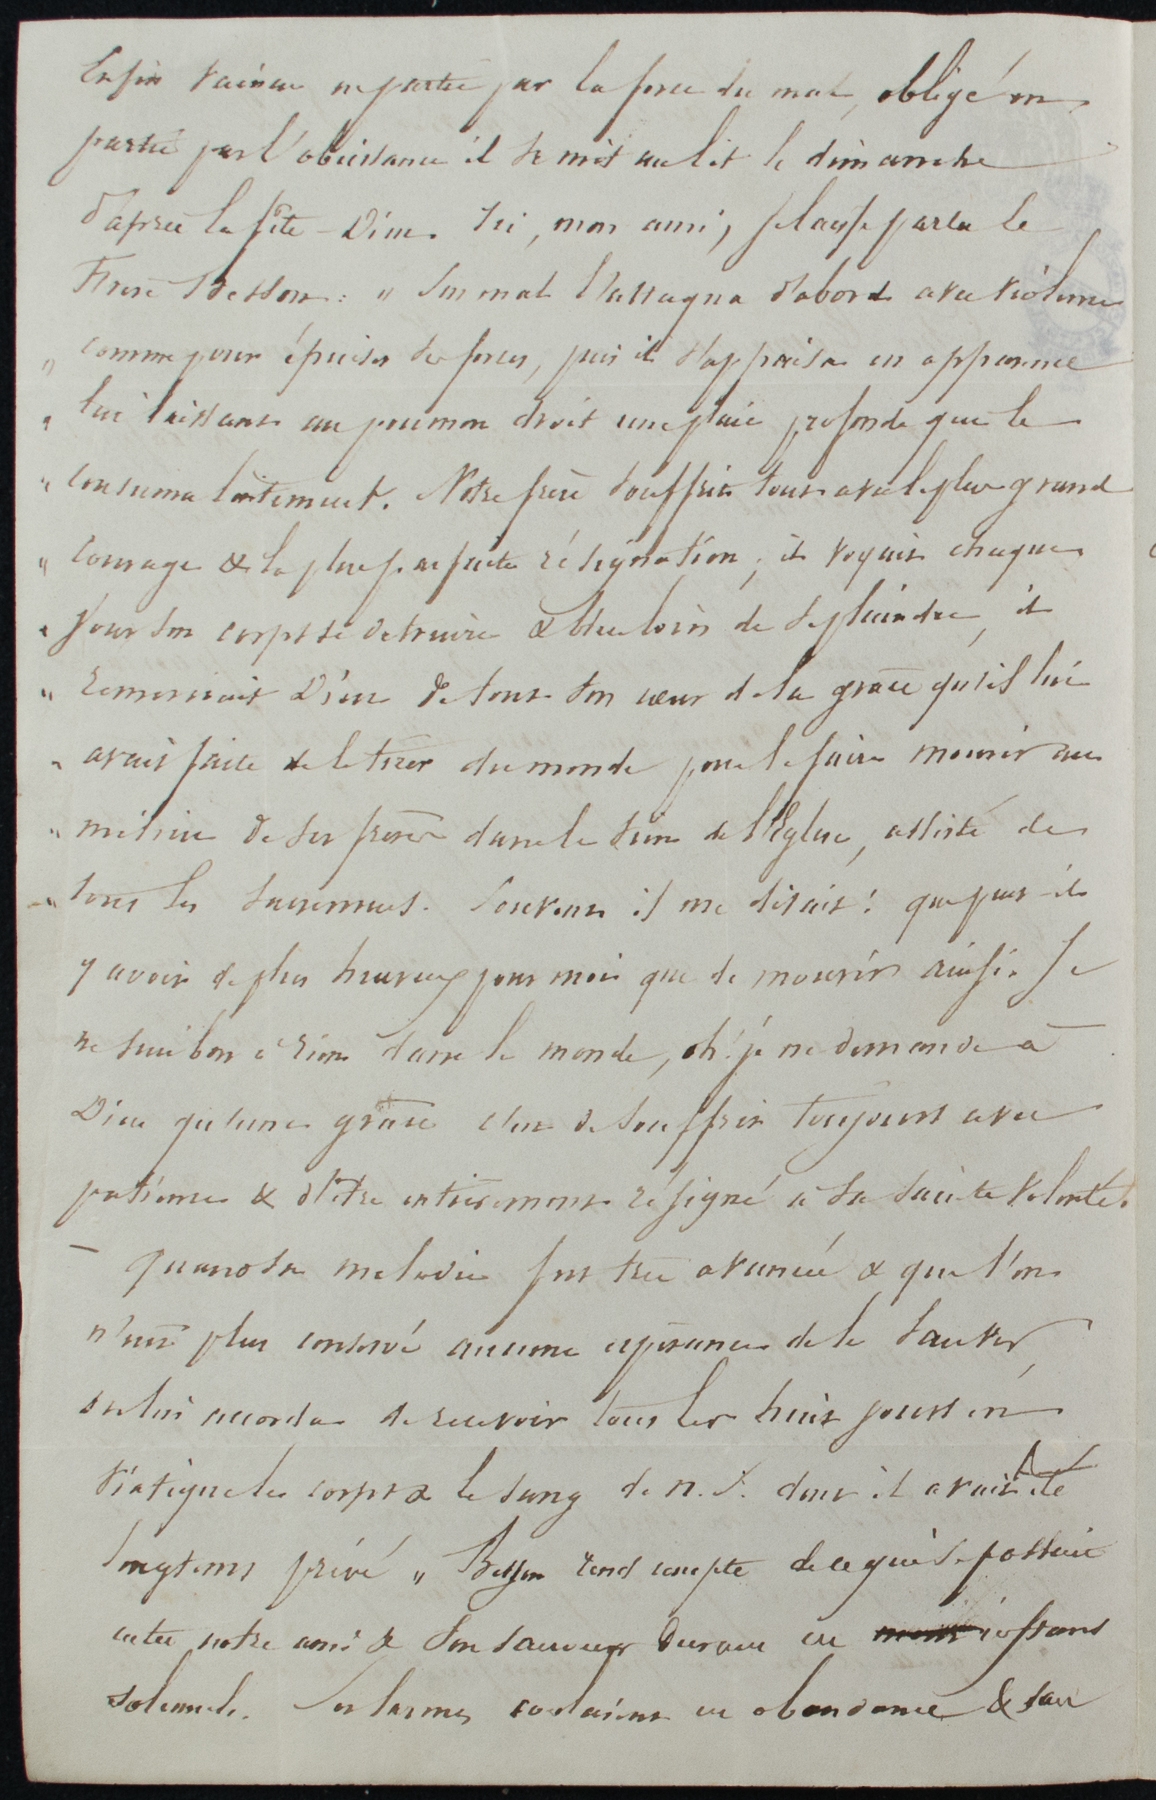 Enfin vaincu en partie par la force du mal, obligé en
partie par l'obéissance il se mit au lit le dimanche
d'après la fête-Dieu. Ici, mon ami, je laisse parler le
Frère Besson : " Son mal l'attaqua d'abord avec violence
" comme pour épuiser ses forces, puis il s'appaisa en apparence
" lui laissant au poumon droit une plaie profonde que le
" consuma lentement. Notre frère souffrit tout avec le plus grand
" courage & la plus parfaite résignation ; il voyait chaque
" jour son corps se détruire & bien loin de se plaindre, il
" remerciait Dieu de tout son cœur de la grâce qu'il lui
" avait faite de le tirer du monde pour le faire mourir au
" milieu de ses frères dans le sein de l'Eglise, assisté de
" tous les sacremens. Souvent il me disait : que peut-il
y avoir de plus heureux pour moi que de mourir ainsi. Je
ne suis bon à rien dans le monde, oh! je ne demande à
Dieu qu'une grâce c'est de souffrir toujours avec
patience & d'être entièrement résigné à sa sainte volonté.
– Quand sa maladie fut très avancée & que l'on
n'eut plus conservé aucune espérance de le sauver
on lui accorda de recevoir tous les huit jours en
viatique le corps & le sang de n. S. dont il avait été
longtems privé " Besson rend compte de ce qui se passait
entre notre ami & son sauveur durant ces instans
solennels. Ses larmes coulaient en abondance & sau